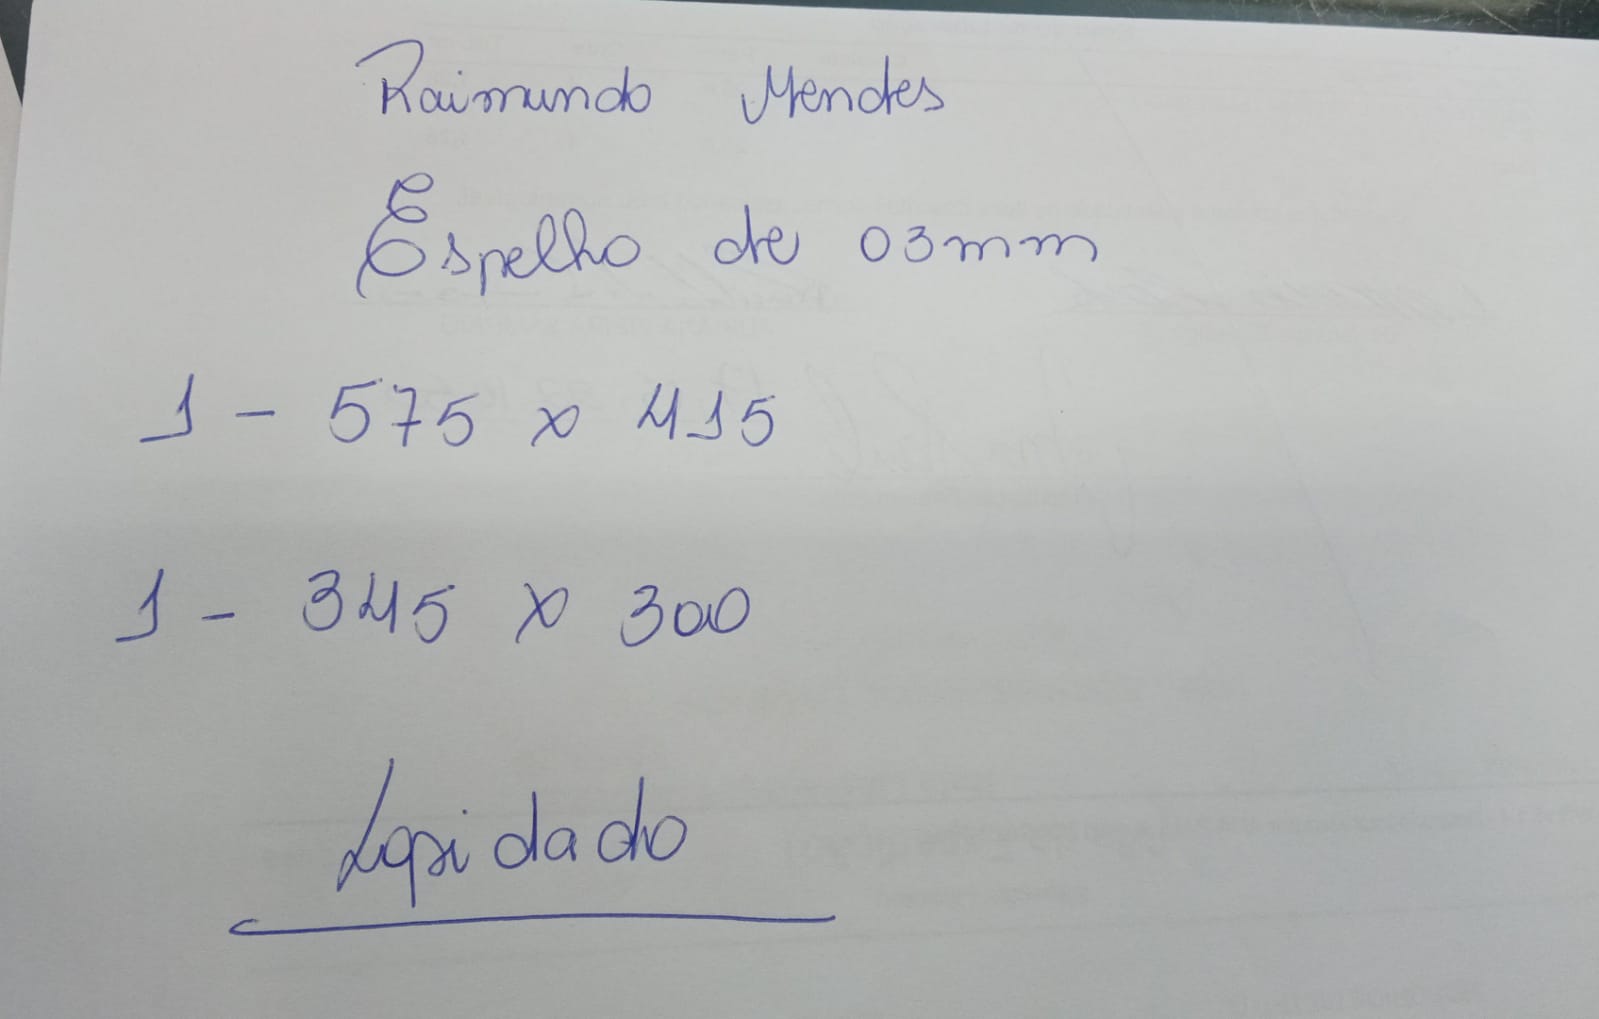 Raimundo Mendes
Espelho de 03mm
1 - 575 x 415
1 - 345 x 300
Lapidado